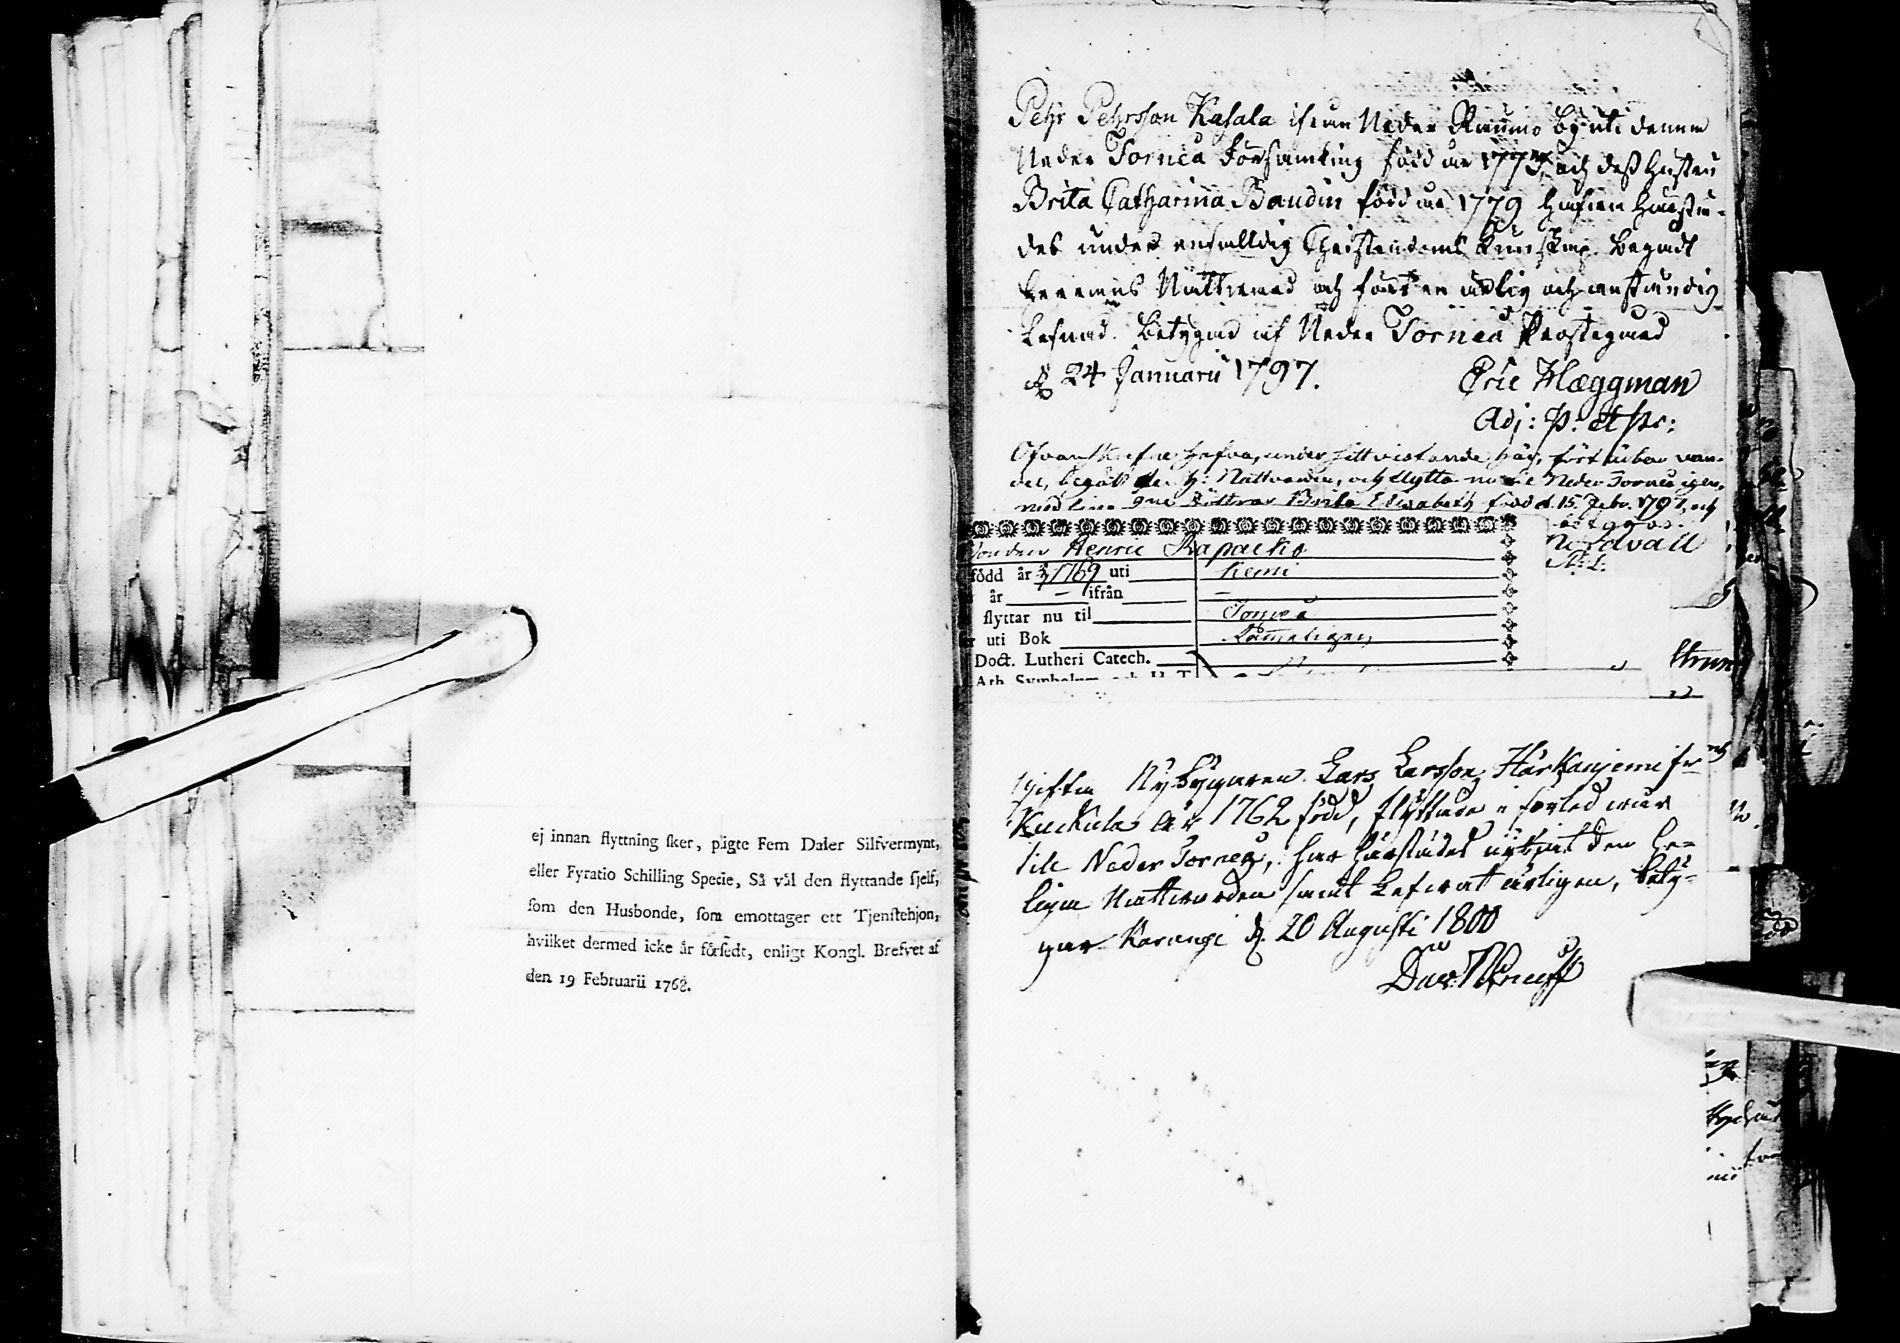 ej innan flyttning sker, pligte Fem Daler Silfvermynt,
eller Fyratio Schilling Specie, Så väl den flyttande sjelf,
som den Husbonde, som emottager ett Tjenstehjon,
hvilket dermed icke är försedt, enligt Kongl. Brefvet af
den 19 Februarii 1768.
Pehr Pehrsson Kasala ifrån Neder Raumo By uti denna
Neder Torneå Församling född år 177 och dess Hustru
Brita Catharina Baudin född år 1779 hafwa härstä-
des under enfalldig Christendoms kunskap begådt
Herrans Nattward och fört en ärlig och anständig
Lefnad. Betygas af Neder Torneå Prostegård
d. 24 Januarii 1797.
Eric Hæggman
Adj: P: et Pr:
Ofvanskrefne hafva, under sitt vistande här, fört ärbar van-
del, begått den H: Nattvarden, och flytta nu til Neder Torneå igen,
med sine Dottrar Brita Elisabeth född d. 15 Febr. 1797, och
betygas.
Nordvall
Henric Rapacko
född år 1769 uti Kemi
år – ifrån –
flyttar nu til Torneå
uti Bok
Doct. Lutheri Catech.
Ath. Symbolum och H. T.
Gifta Nybyggaren Lars Larsson Härkänjemi fr
Kuckula år 1762 född, flyttade i förled. wår
till Neder Torneå, har härstädes nyttjat den He-
liga Nattwarden samt Lefwat ärligen, bety-
gar Karungi d. 20 Augusti 1800